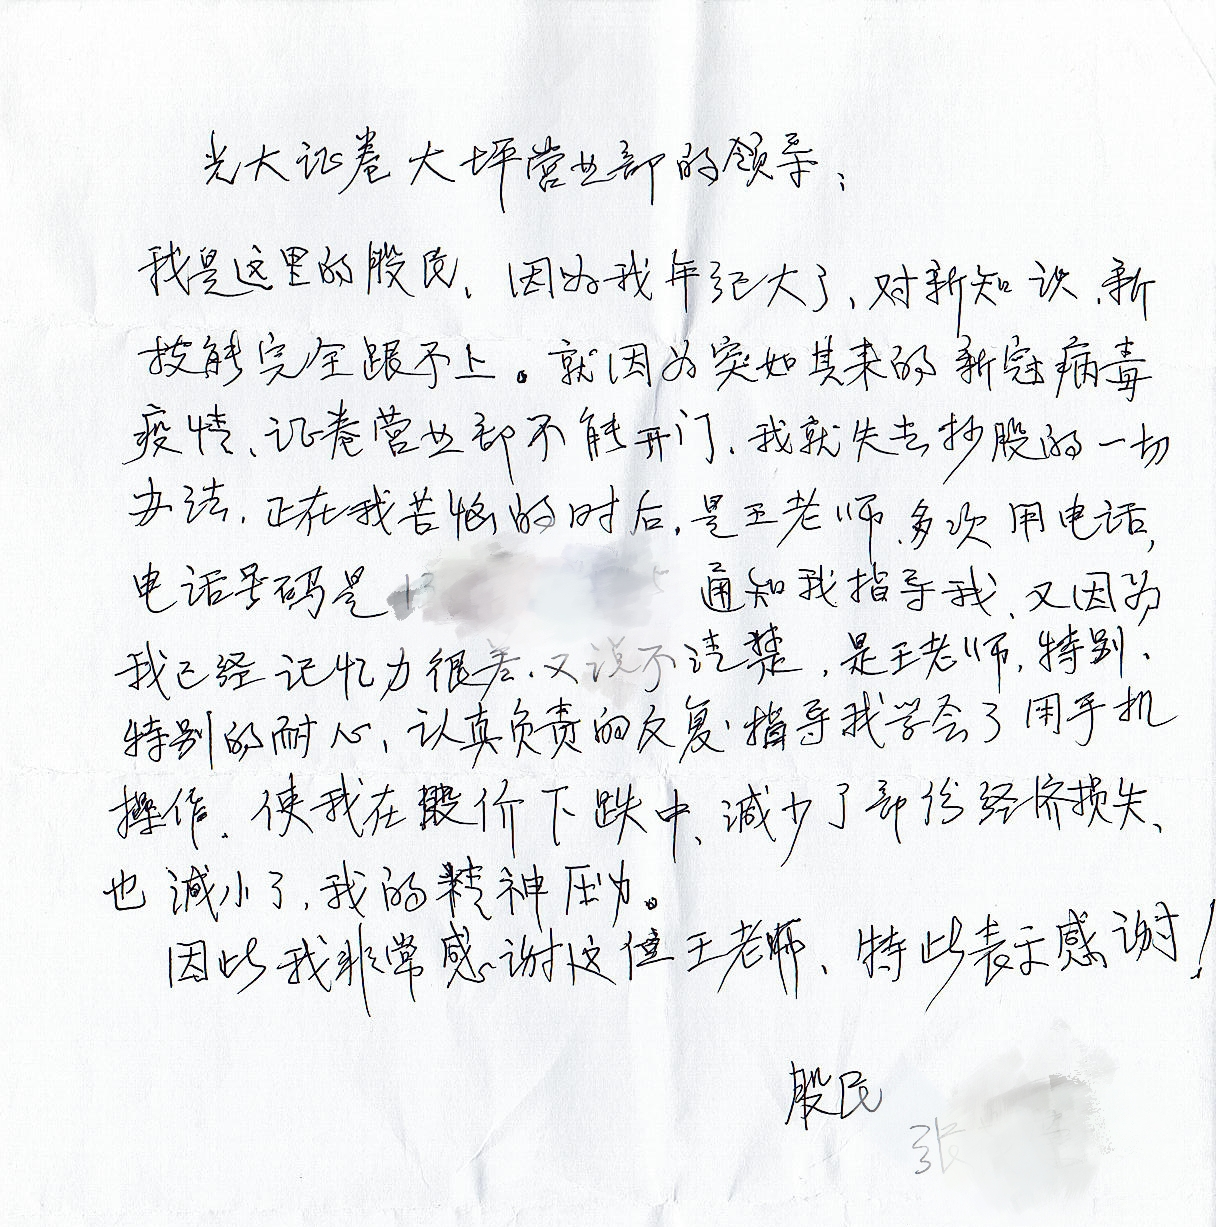 光大证卷大坪营业部的领导：
我是这里的股民、因为我年纪大了、对新知识、新
技能完全跟不上。就因为突如其来的新冠病毒
疫情、证卷营业部不能开门、我就失去抄股的一切
办法、正在我苦恼的时后，是王老师，多次用电话，
电话号码是13 5 通知我指导我、又因为
我已经记忆力很差、又说不清楚，是王老师，特别、
特别的耐心、认真负责的反复指导我学会了用手机
操作、使我在股价下跌中、减少了部份经济损失、
也减小了，我的精神压力。
因此我非常感谢这位王老师、特此表示感谢！
股民
张